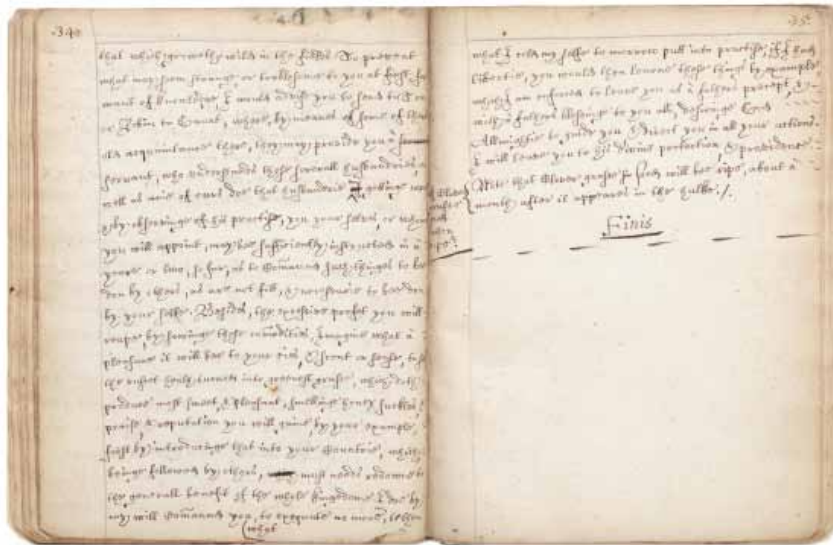 34
that which groweth wild in the fields To prevent
what may seem strange, or troblesome to you at first, for
want of knowledge, I would advise you to send to
or to Gaunt, where, by meanes of some of
old acquaintance there, they may provide you a
servant, who understandes these severall husbandries, as
well as anie of ours doe that husbandrie
by observinge of his practise, you your selves, or whom
you will appoint, may bee sufficiently instructed in a
yeare or two, so far, as to Comaund such thinges to bee
don by others, as are not fitt, & to bee don
by your selfe. Besides, the excessive profitt you will
reape by sowinge these comodities, imagine what a
pleasure it will bee to your eies, & sent
the russet heath turned into greenest grasse, which doth
produce most sweet, & pleasant, honey suckles,
praise, & reputation you will gaine, by your example,
first by introducinge that into your Countrie, which
beinge followed by others, must needes redound to
the generall benefit of the whole kingdome I doe by
my will Comaund you, to execute no more, then
what
35
what I my selfe to morrow putt into practise, if I had
libertie, you would then learne these thinges by example
which I am enforced to leave you as a fathers precept, &
with a fathers blessinge to you all, desiringe God
Allmightie to guide you & direct you in all your actions
I will leave you to his divine protection, & providence
Note that Clover grasse seed will bee ripe, about a
month after it appeares in the huske /.
Finis